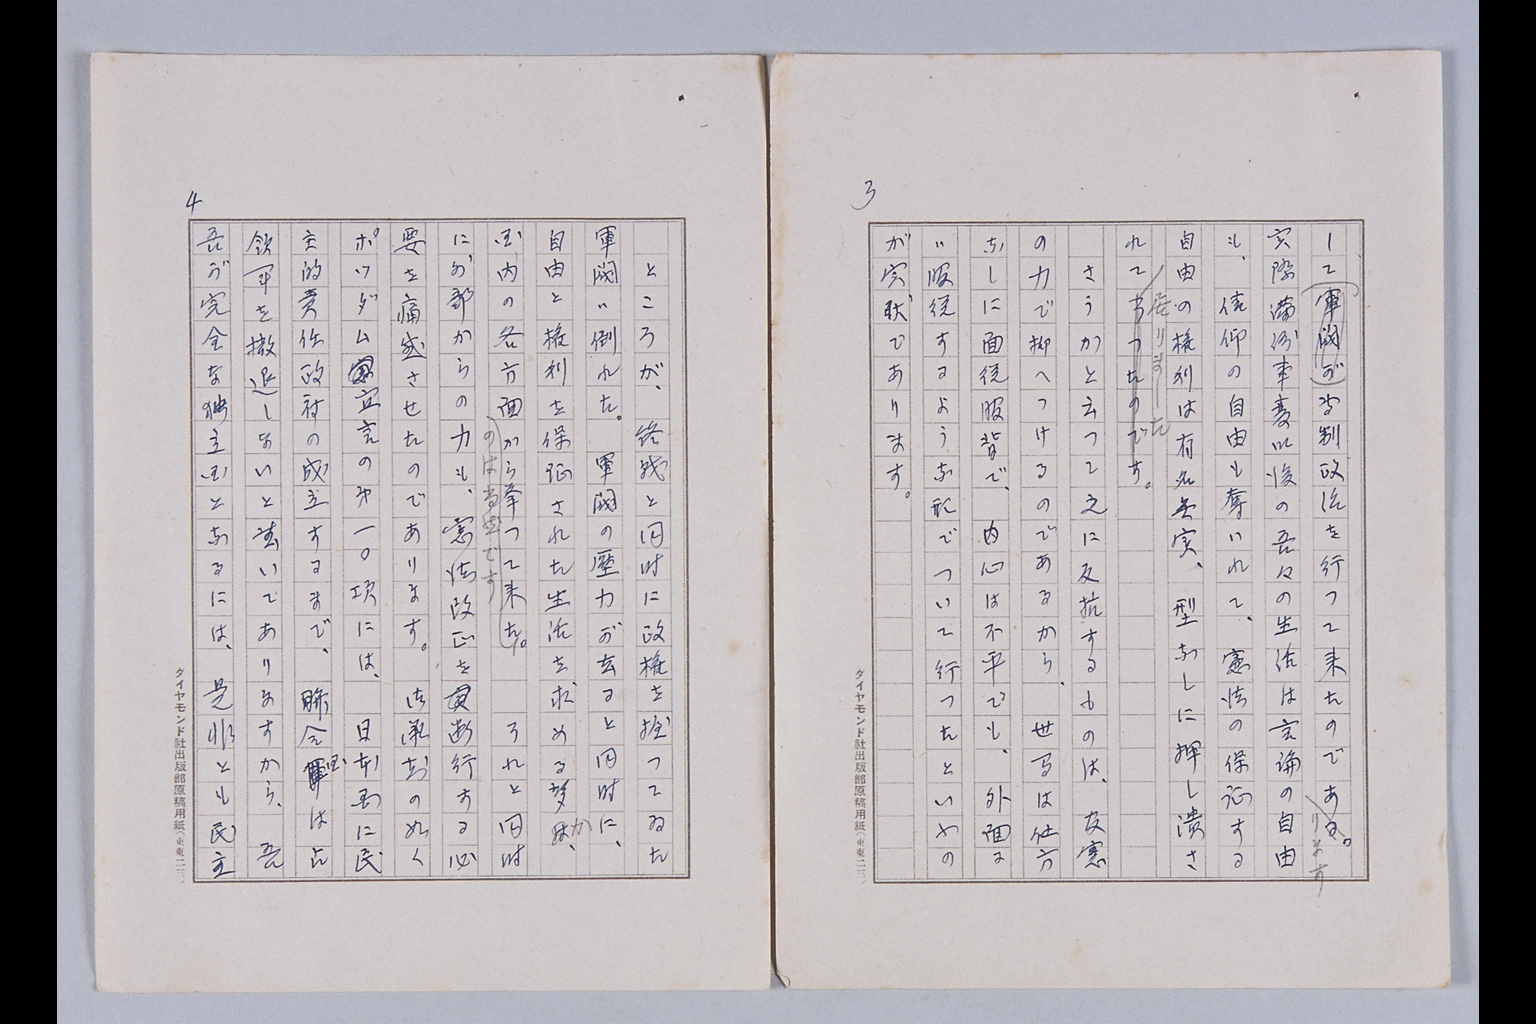 3
して軍閥が専制政治を行って来たのである。
ります
実際満洲事変以後の吾々の生活は言論の自由
も、信仰の自由も奪いれて、憲法の保証する
自由の権利は有名無実、型なしに押し潰さ
れて居りました
あったのです。
さうかと云って之に反抗するものは、友憲
の力で押へつけるのであるから、世多は仕方
なしに面従腹背で、内心は不平でも、外面は
服従するような形でついて行ったといふの
が実状であります。
4
ところが、終戦と同時に政権を握ってゐた
軍閥は倒れた。軍閥の圧力が去ると同時に、
自由と権利を保証された生活を求める声が、
国内の各方面から挙って来た。それと同時
のは当然です
に外部からの力も、憲法改正を断行する必
要を痛感させたのであります。御承知の如く
ポツダム宣言の第一〇項には、日本国に民
主的責任政府の成立するまで、聯合国は占
領軍を撤退しないと書いてありますから、吾
吾が完全な独立国となるには、是非とも民主
ダイヤモンド社出版部原稿用紙
ダイヤモンド社出版部原稿用紙